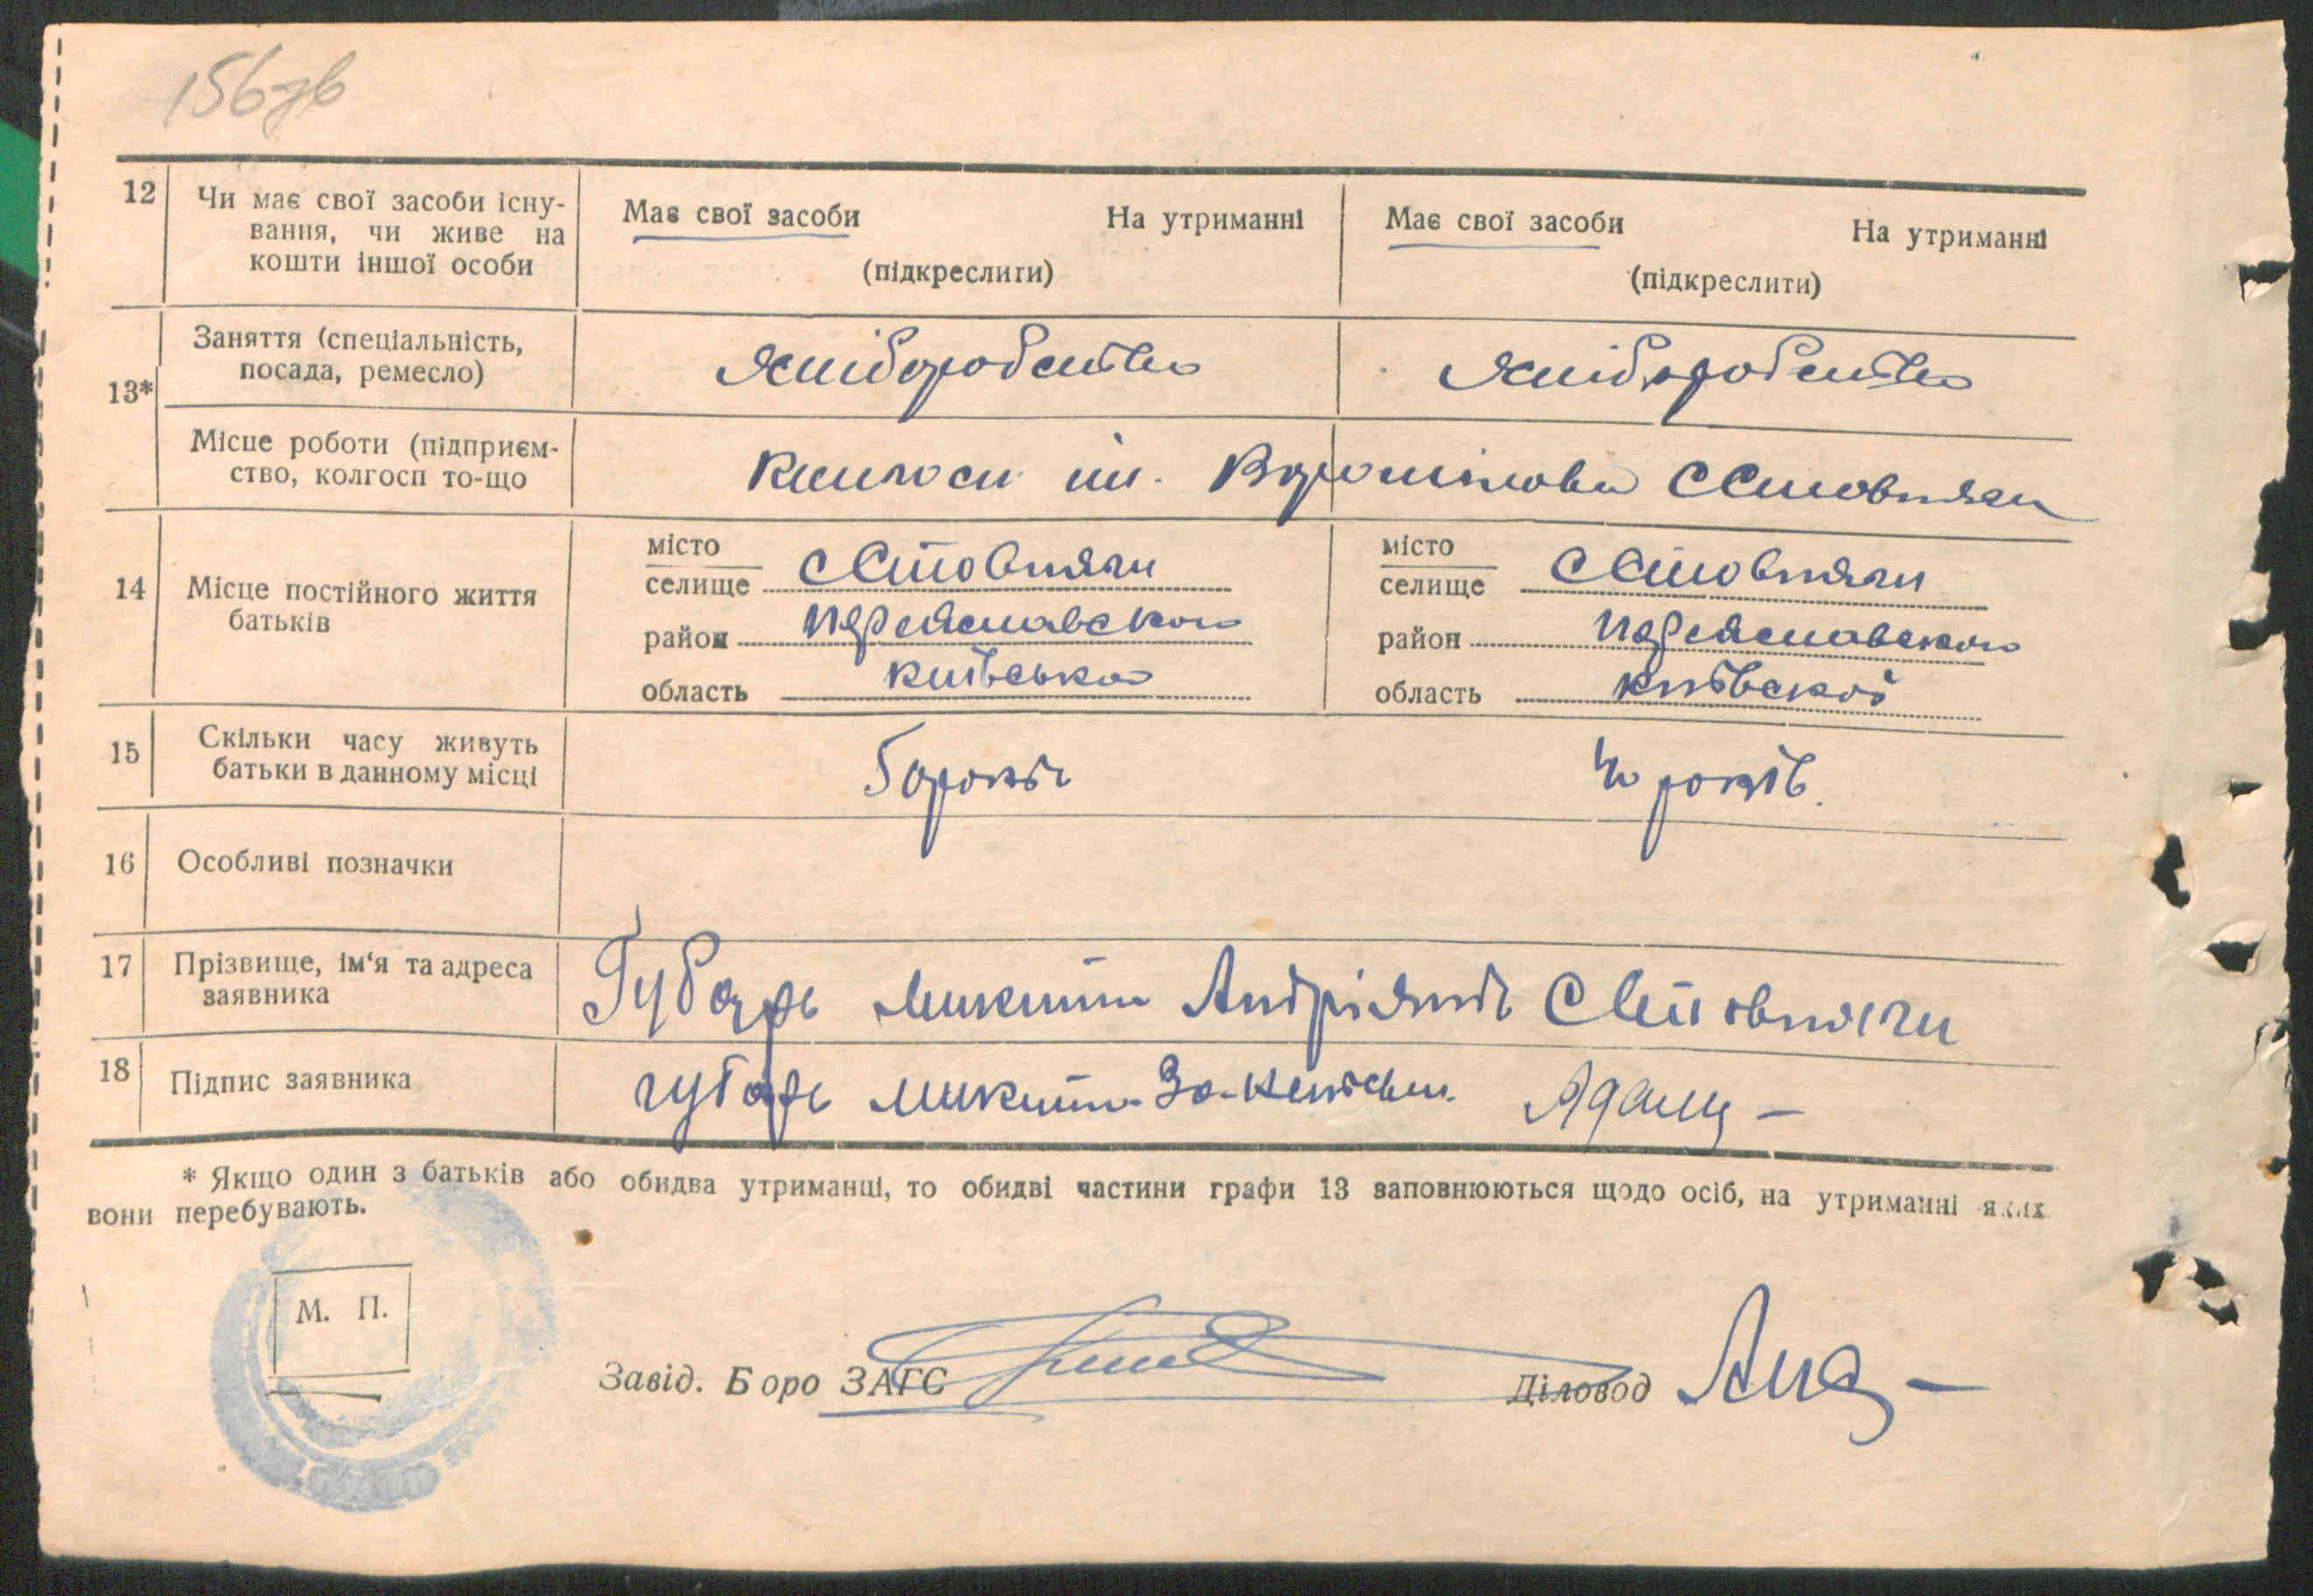 156зв
12 Чи має свої засоби існу- Має свої засоби На утриманні Має свої засоби На утриманні
вання, чи живе на
кошти іншої особи (підкреслити) (підкреслити)
Заняття (спеціальність,
посада, ремесло) хліборобство хліборобство
13*
Місце роботи (підприєм-
ство, колгосп то-що колгосп ім. Ворошилова с Стовпяги
14 Місце постійного життя
батьків
місто
селище с Стовпяги
район переяславского
область київсько
місто
селище с Стовпяги
район переяславского
область київської
15 Скільки часу живуть
батьки в данному місці років 40 років.
16 Особливі позначки
17 Прізвище, ім‘я та адреса
заявника Губарь Микита Андріянів с Стовпяги
18 Підпис заявника губарь микита
* Якщо один з батьків або обидва утриманці, то обидві частини графи 13 заповнюються щодо осіб, на утриманні яких
вони перебувають.
М. П.
Завід. Боро ЗАГС Діловод